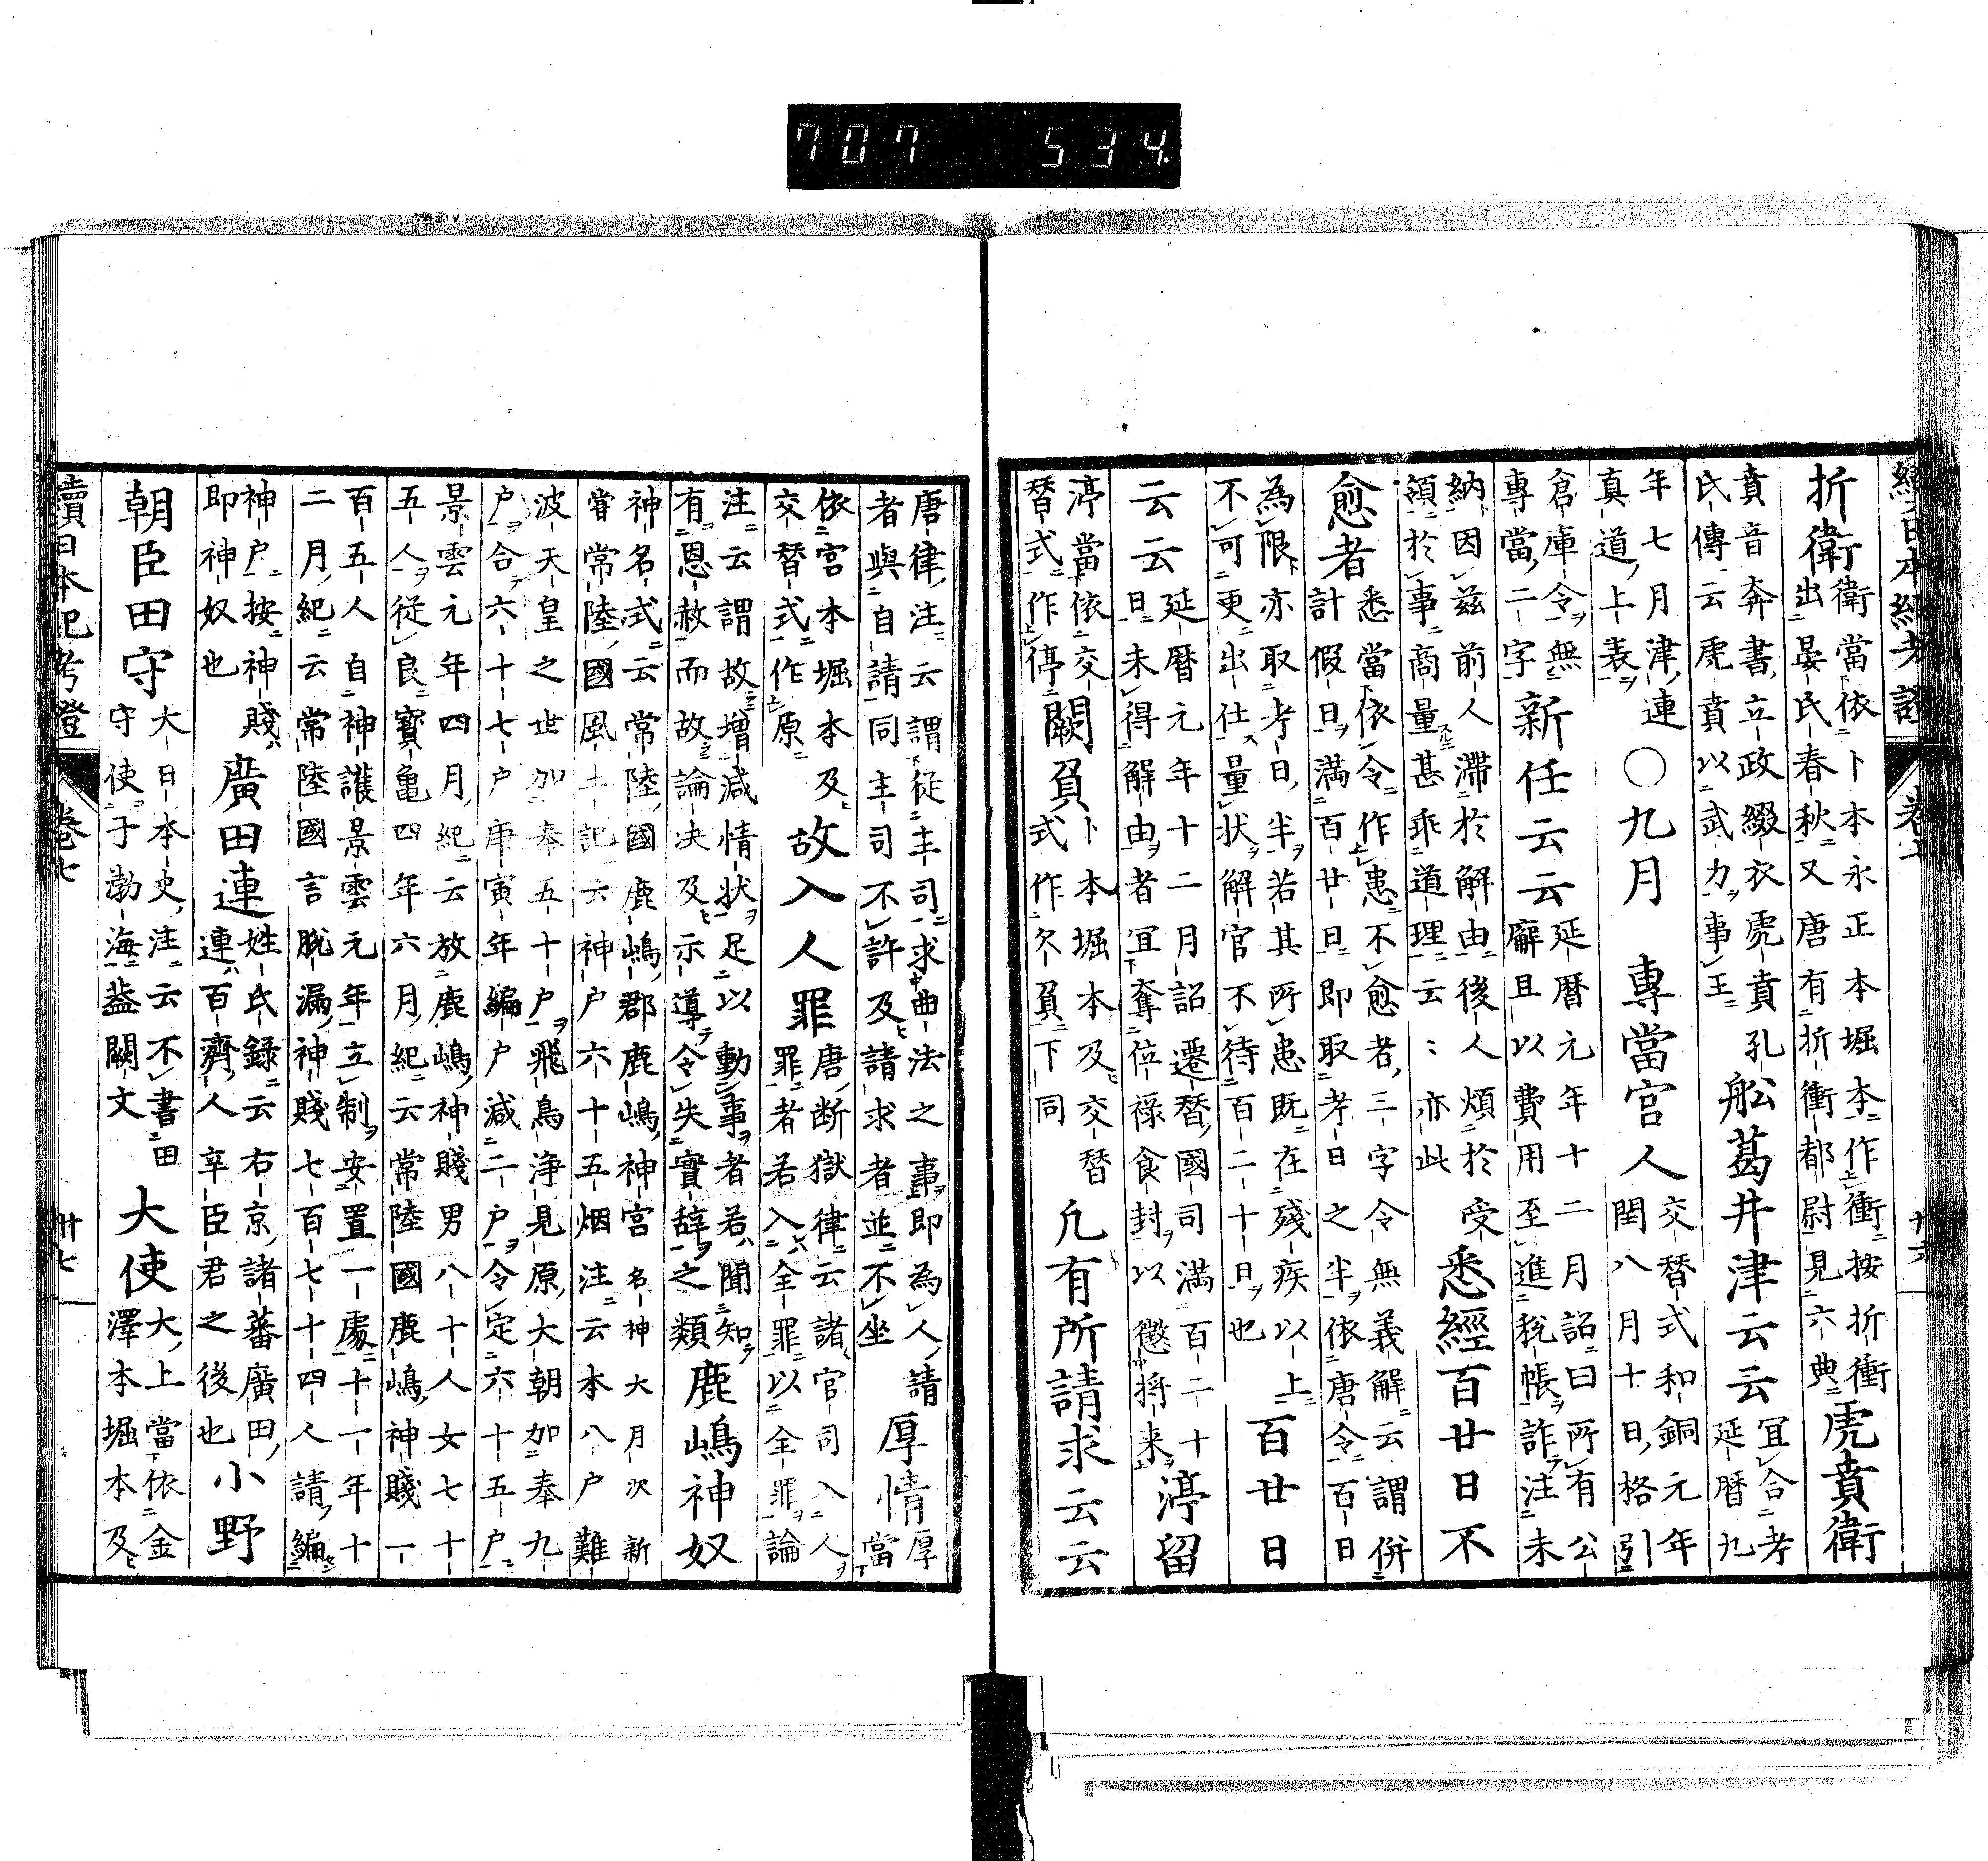 707 534
續日本紀考證 卷七 廿六
折衛
衛當依卜本永正本堀本作衝按折衝
出晏氏春秋又唐有折衝都尉見六典
虎賁衛
賁音奔書立政綴衣虎賁孔
氏傳云虎賁以武力事王
船葛井津云云
冝合考
延暦九
年七月津連
真道上表
〇九月 專當官人
交替式和銅元年
閏八月十日格引
倉庫令無
專當二字
新任云云
延暦元年十二月詔曰所有公
廨且以費用至進税帳詐注未
納因茲前人滯於解由後人煩於受
領於事商量甚乖道理云〻亦此
悉經百廿日不
愈者
悉當依令作患不愈者三字令無義解云謂併
計假日満百廿日即取考日之半依唐令百日
為限亦取考日半若其所患既在殘疾以上
不可更出仕量状解官不待百二十日也
百廿日
云云
延暦元年十二月詔遷替國司満百二十
日未得解由者冝奪位禄食封以懲将来
渟留
渟當依交
替式作停
闕負
卜本堀本及交替
式作欠負下同
凢有所請求云云
唐律注云謂従主司求曲法之事即為人請
者與自請同主司不許及請求者並不坐
厚情
厚
當
依宮本堀本及
交替式作原
故入人罪
唐断獄律云諸官司入人
罪者若入全罪以全罪論
注云謂故増減情状足以動事者若聞知
有恩赦而故論决及示導令失實辞之類
鹿嶋神奴
神名式云常陸國鹿嶋郡鹿嶋神宮名神大月次新
甞常陸國風土記云神戸六十五烟注云本八戸難
波天皇之世加奉五十戸飛鳥浄見原大朝加奉九
戸合六十七戸庚寅年編戸減二戸令定六十五戸
景雲元年四月紀云放鹿嶋神賤男八十人女七十
五人従良寳亀四年六月紀云常陸國鹿嶋神賤一
百五人自神護景雲元年立制安置一處十一年十
二月紀云常陸國言脱漏神賤七百七十四人請編
神戸按神賤
即神奴也
廣田連
姓氏録云右京諸蕃廣田
連百濟人辛臣君之後也
小野
朝臣田守
大日本史注云不書田
守使于渤海葢闕文
大使
大上當依金
澤本堀本及
續日本紀考證 卷七 廿七